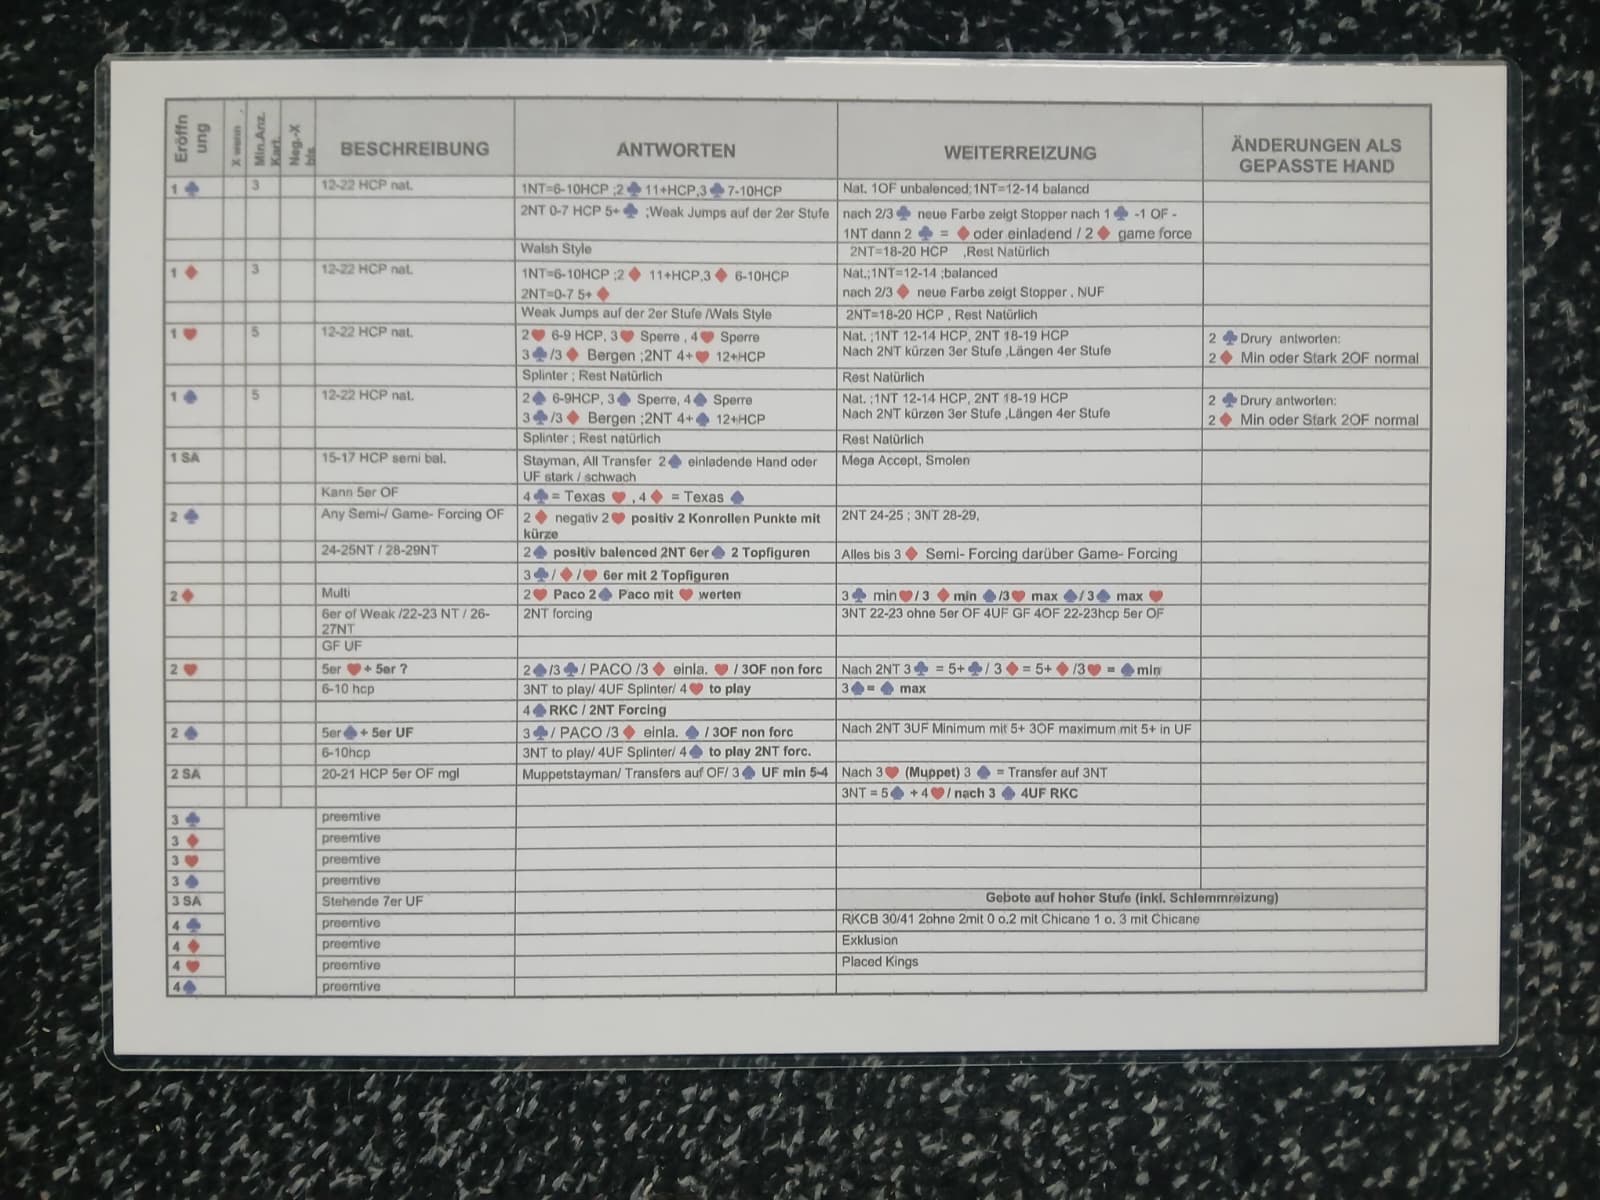 Eröffn ung X wenn Min.Anz. Kart. Neg.-X bis BESCHREIBUNG ANTWORTEN WEITERREIZUNG ÄNDERUNGEN ALS GEPASSTE HAND
1 ♣ 3 12-22 HCP nat. 1NT=6-10HCP ;2 ♣ 11+HCP,3 ♣ 7-10HCP Nat. 1OF unbalenced;1NT=12-14 balancd
2NT 0-7 HCP 5+ ♣ ;Weak Jumps auf der 2er Stufe nach 2/3 ♣ neue Farbe zeigt Stopper nach 1 ♣ -1 OF -
1NT dann 2 ♣ = ♦ oder einladend / 2 ♦ game force
Walsh Style 2NT=18-20 HCP ,Rest Natürlich
1 ♦ 3 12-22 HCP nat. 1NT=6-10HCP ;2 ♦ 11+HCP,3 ♦ 6-10HCP Nat.;1NT=12-14 ;balanced
2NT=0-7 5+ ♦ nach 2/3 ♦ neue Farbe zeigt Stopper , NUF
Weak Jumps auf der 2er Stufe /Wals Style 2NT=18-20 HCP , Rest Natürlich
1 ♥ 5 12-22 HCP nat. 2♥ 6-9 HCP, 3♥ Sperre , 4♥ Sperre Nat. ;1NT 12-14 HCP, 2NT 18-19 HCP 2 ♣ Drury antworten:
3 ♣/3 ♦ Bergen ;2NT 4+♥ 12+HCP Nach 2NT kürzen 3er Stufe ,Längen 4er Stufe 2 ♦ Min oder Stark 2OF normal
Splinter ; Rest Natürlich Rest Natürlich
1 ♠ 5 12-22 HCP nat. 2♠ 6-9HCP, 3♠ Sperre, 4♠ Sperre Nat. ;1NT 12-14 HCP, 2NT 18-19 HCP 2 ♣ Drury antworten:
3 ♣/3 ♦ Bergen ;2NT 4+♠ 12+HCP Nach 2NT kürzen 3er Stufe ,Längen 4er Stufe 2 ♦ Min oder Stark 2OF normal
Splinter ; Rest natürlich Rest Natürlich
1 SA 15-17 HCP semi bal. Stayman, All Transfer 2♠ einladende Hand oder Mega Accept, Smolen
UF stark / schwach
Kann 5er OF 4 ♣ = Texas ♥ , 4 ♦ = Texas ♠
2 ♣ Any Semi-/ Game- Forcing OF 2 ♦ negativ 2♥ positiv 2 Konrollen Punkte mit 2NT 24-25 ; 3NT 28-29,
kürze
24-25NT / 28-29NT 2♠ positiv balenced 2NT 6er♠ 2 Topfiguren Alles bis 3 ♦ Semi- Forcing darüber Game- Forcing
3 ♣/ ♦ /♥ 6er mit 2 Topfiguren
2 ♦ Multi 2♥ Paco 2♠ Paco mit ♥ werten 3 ♣ min♥/ 3 ♦ min ♠/3♥ max ♠/ 3♠ max ♥
6er of Weak /22-23 NT / 26- 2NT forcing 3NT 22-23 ohne 5er OF 4UF GF 4OF 22-23hcp 5er OF
27NT
GF UF
2 ♥ 5er ♥+ 5er ? 2♠/3 ♣/ PACO /3 ♦ einla. ♥ / 3OF non forc Nach 2NT 3 ♣ = 5+♣/ 3 ♦ = 5+ ♦ /3♥ = ♠min
6-10 hcp 3NT to play/ 4UF Splinter/ 4♥ to play 3♠= ♠ max
4♠ RKC / 2NT Forcing
2 ♠ 5er♠+ 5er UF 3 ♣/ PACO /3 ♦ einla. ♠ / 3OF non forc Nach 2NT 3UF Minimum mit 5+ 3OF maximum mit 5+ in UF
6-10hcp 3NT to play/ 4UF Splinter/ 4♠ to play 2NT forc.
2 SA 20-21 HCP 5er OF mgl Muppetstayman/ Transfers auf OF/ 3♠ UF min 5-4 Nach 3♥ (Muppet) 3 ♠ = Transfer auf 3NT
3NT = 5♠ + 4♥/ nach 3 ♠ 4UF RKC
3 ♣ preemtive
3 ♦ preemtive
3 ♥ preemtive
3 ♠ preemtive
3 SA Stehende 7er UF Gebote auf hoher Stufe (inkl. Schlemmreizung)
4 ♣ preemtive RKCB 30/41 2ohne 2mit 0 o.2 mit Chicane 1 o. 3 mit Chicane
4 ♦ preemtive Exklusion
4 ♥ preemtive Placed Kings
4♠ preemtive